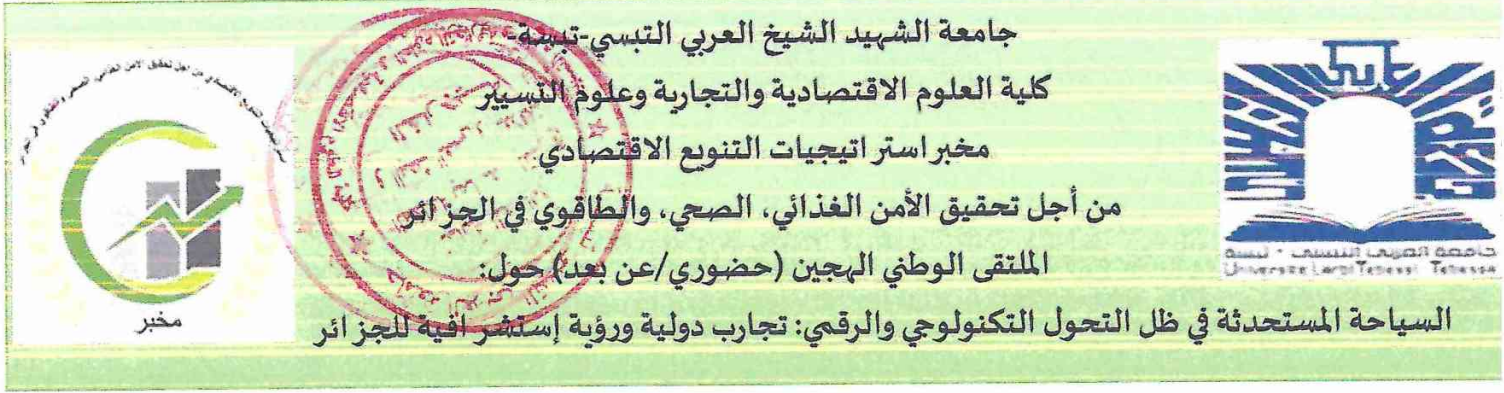 جامعة الشهيد الشيخ العربي التبسي-تبسة-
كلية العلوم الاقتصادية والتجارية وعلوم التسيير
مخبر استراتيجيات التنويع الاقتصادي
من أجل تحقيق الأمن الغذائي، الصحي، والطاقوي في الجزائر
الملتقى الوطني الهجين (حضوري/عن بعد) حول:
السياحة المستحدثة في ظل التحول التكنولوجي والرقمي: تجارب دولية ورؤية إستشرافية للجزائر
مخبر
جامعة العربي التبسي - تبسة
Universite Larbi Tebessi Tebessa